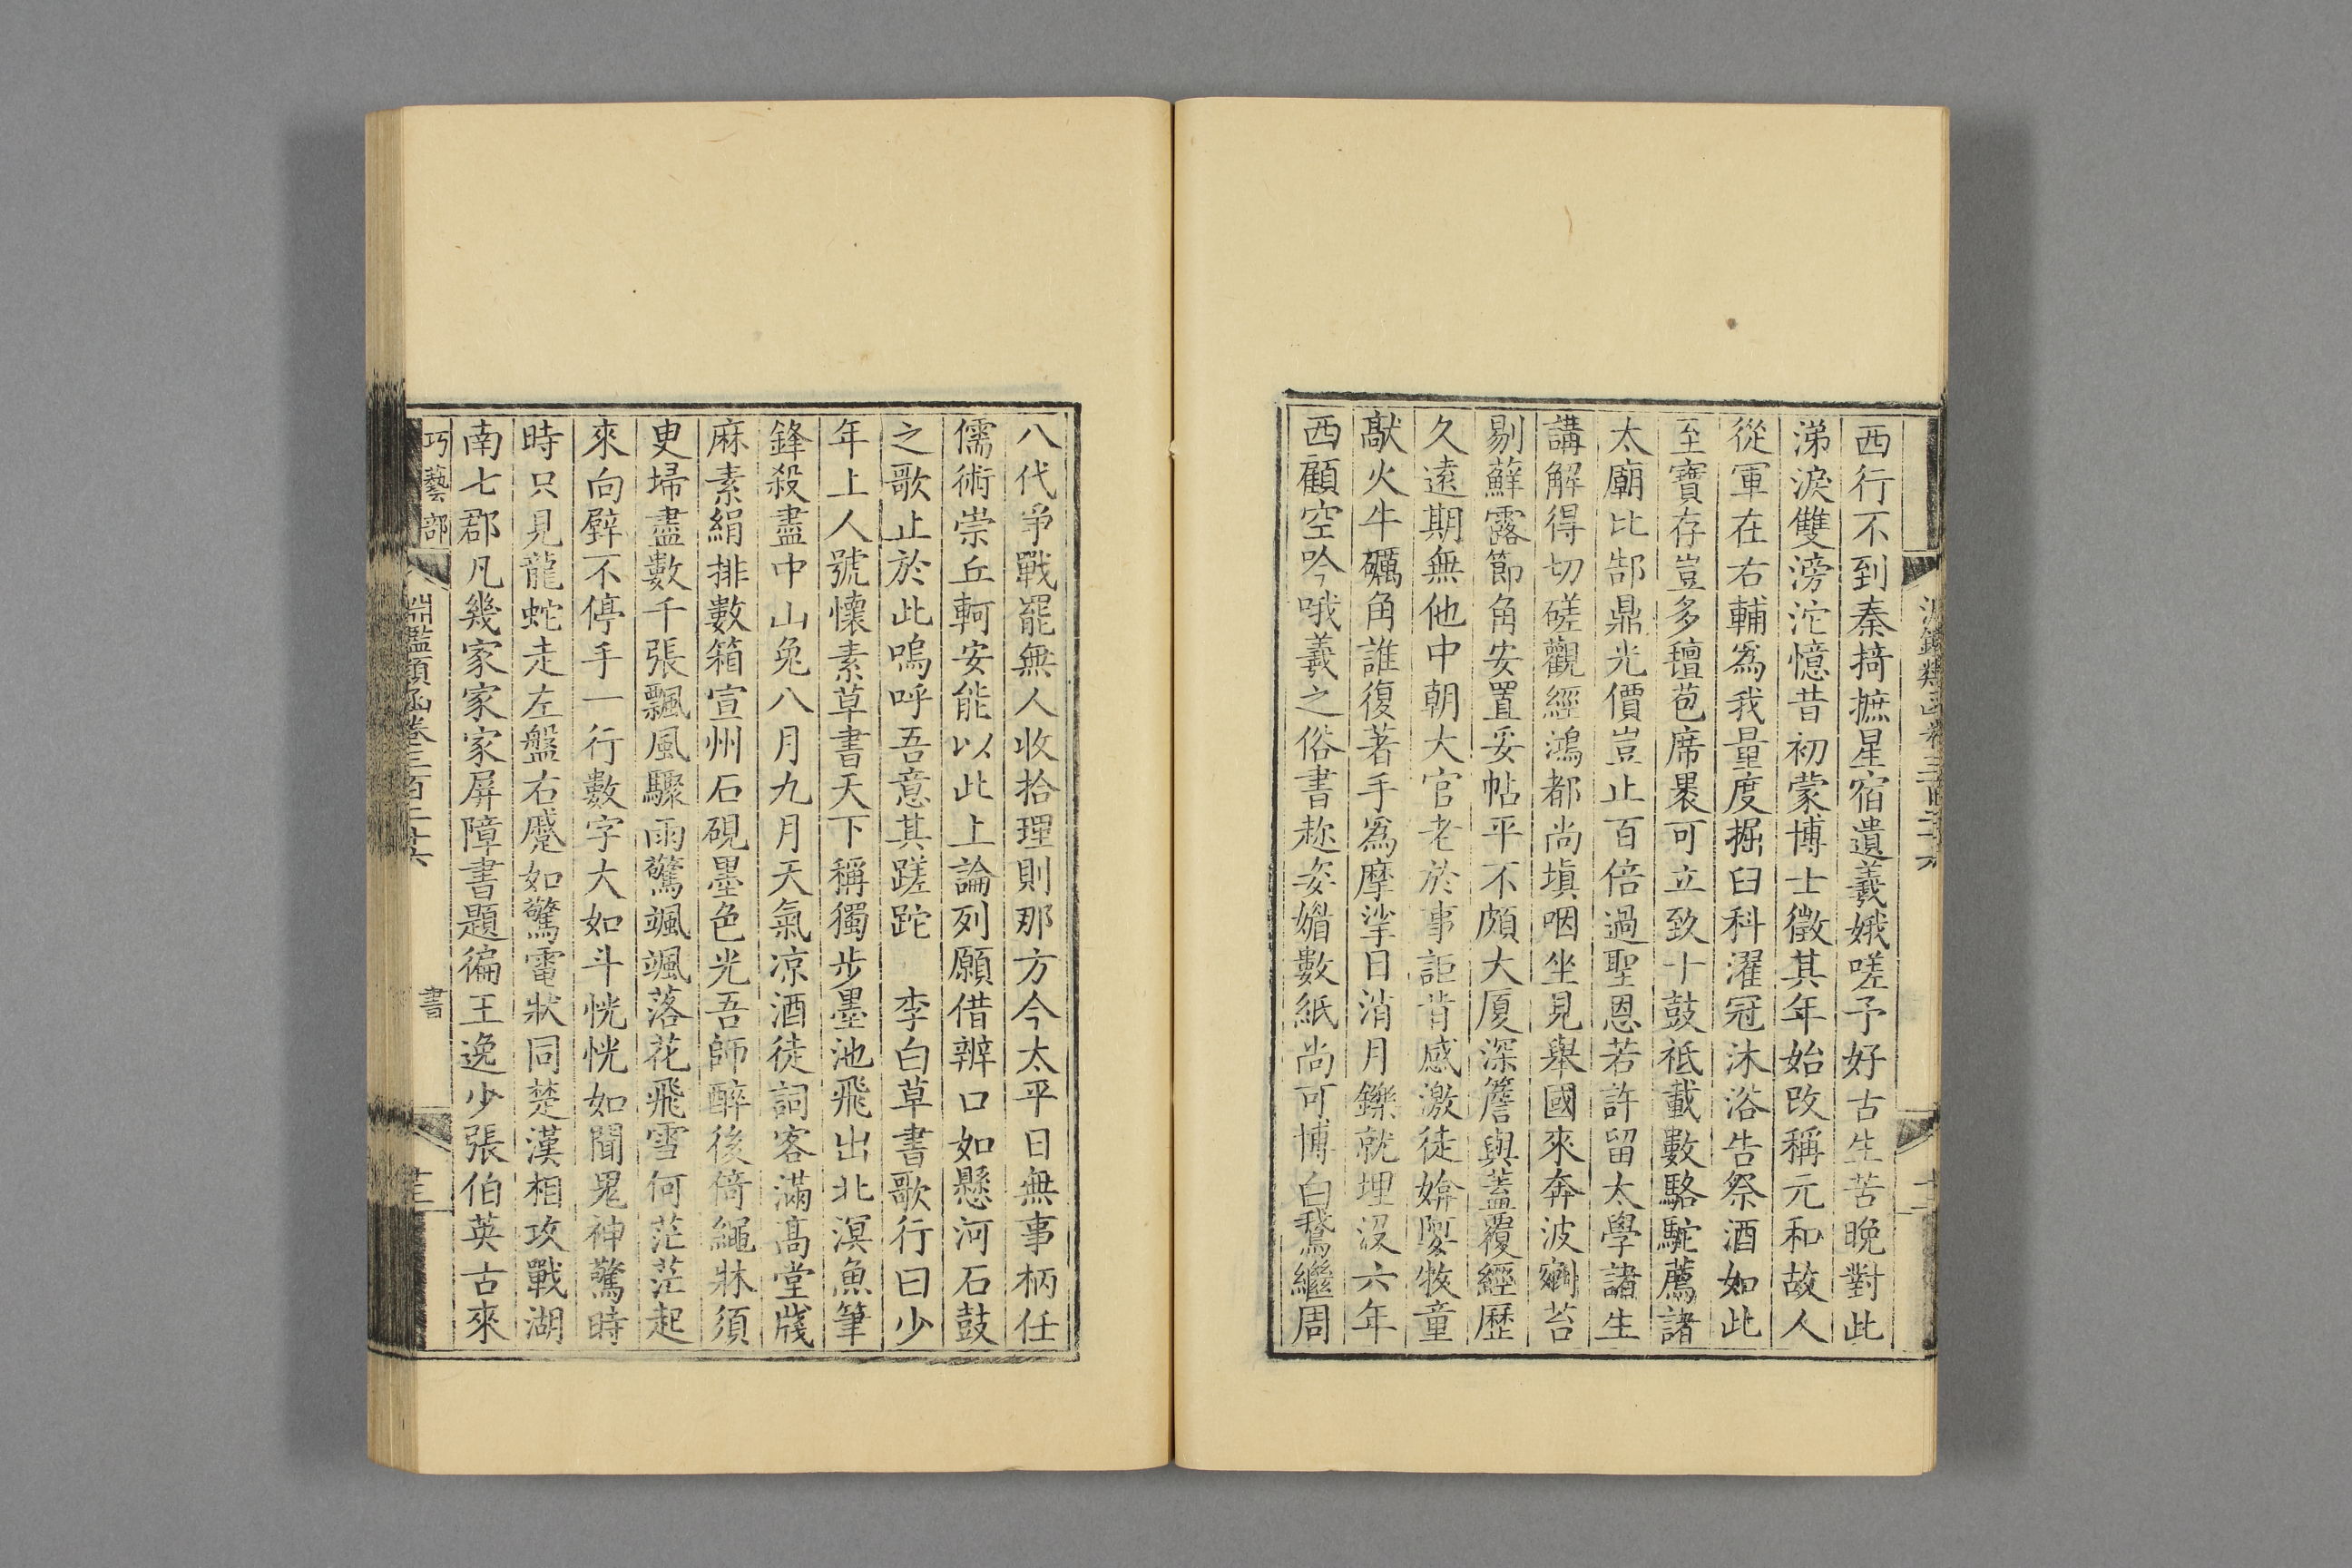 西行不到秦掎摭星宿遺羲娥嗟予好古生苦晚對此
涕淚雙滂沱憶昔初蒙博士徵其年始改稱元和故人
從軍在右輔爲我量度掘臼科濯冠沐浴告祭酒如此
至寶存豈多氊苞席裹可立致十鼓祗載數駱駝薦諸
太廟比郜鼎光價豈止百倍過聖恩若許留太學諸生
講解得切磋觀經鴻都尚塡咽坐見舉國來奔波剜苔
剔蘚露節角安置妥帖平不頗大厦深簷與蓋覆經歷
久遠期無他中朝大官老於事詎肯感激徒媕婀牧童
敲火牛礪角誰復著手爲摩挲日消月鑠就埋沒六年
西顧空吟哦羲之俗書趂姿媚數紙尚可博白鵞繼周
八代爭戰罷無人收拾理則那方今太平日無事柄任
儒術崇丘軻安能以此上論列願借辨口如懸河石鼓
之歌止於此嗚呼吾意其蹉跎　李白草書歌行曰少
年上人號懷素草書天下稱獨步墨池飛出北溟魚筆
鋒殺盡中山兔八月九月天氣凉酒徒詞客滿髙堂牋
麻素絹排數箱宣州石硯墨色光吾師醉後倚繩牀須
更埽盡數千張飄風驟雨驚颯颯落花飛雪何茫茫起
來向壁不停手一行數字大如斗恍恍如聞鬼神驚時
時只見龍蛇走左盤右蹙如驚電狀同楚漢相攻戰湖
南七郡凡幾家家家屏障書題徧王逸少張伯英古來
巧藝部　淵鑑類函卷三百二十六　書